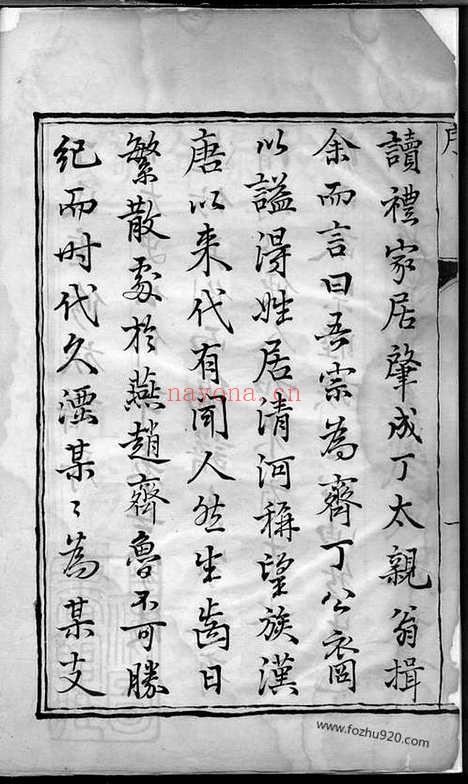 讀禮家居肇成丁太親翁揖
余而言曰吾宗為齊丁公裔
以謚得姓居清河稱望族漢
唐以来代有聞人然生齒日
繁散處於燕趙齊魯不可勝
纪而时代久湮某〻為某支
序
一
nayona.cn
www.fozhu920.com